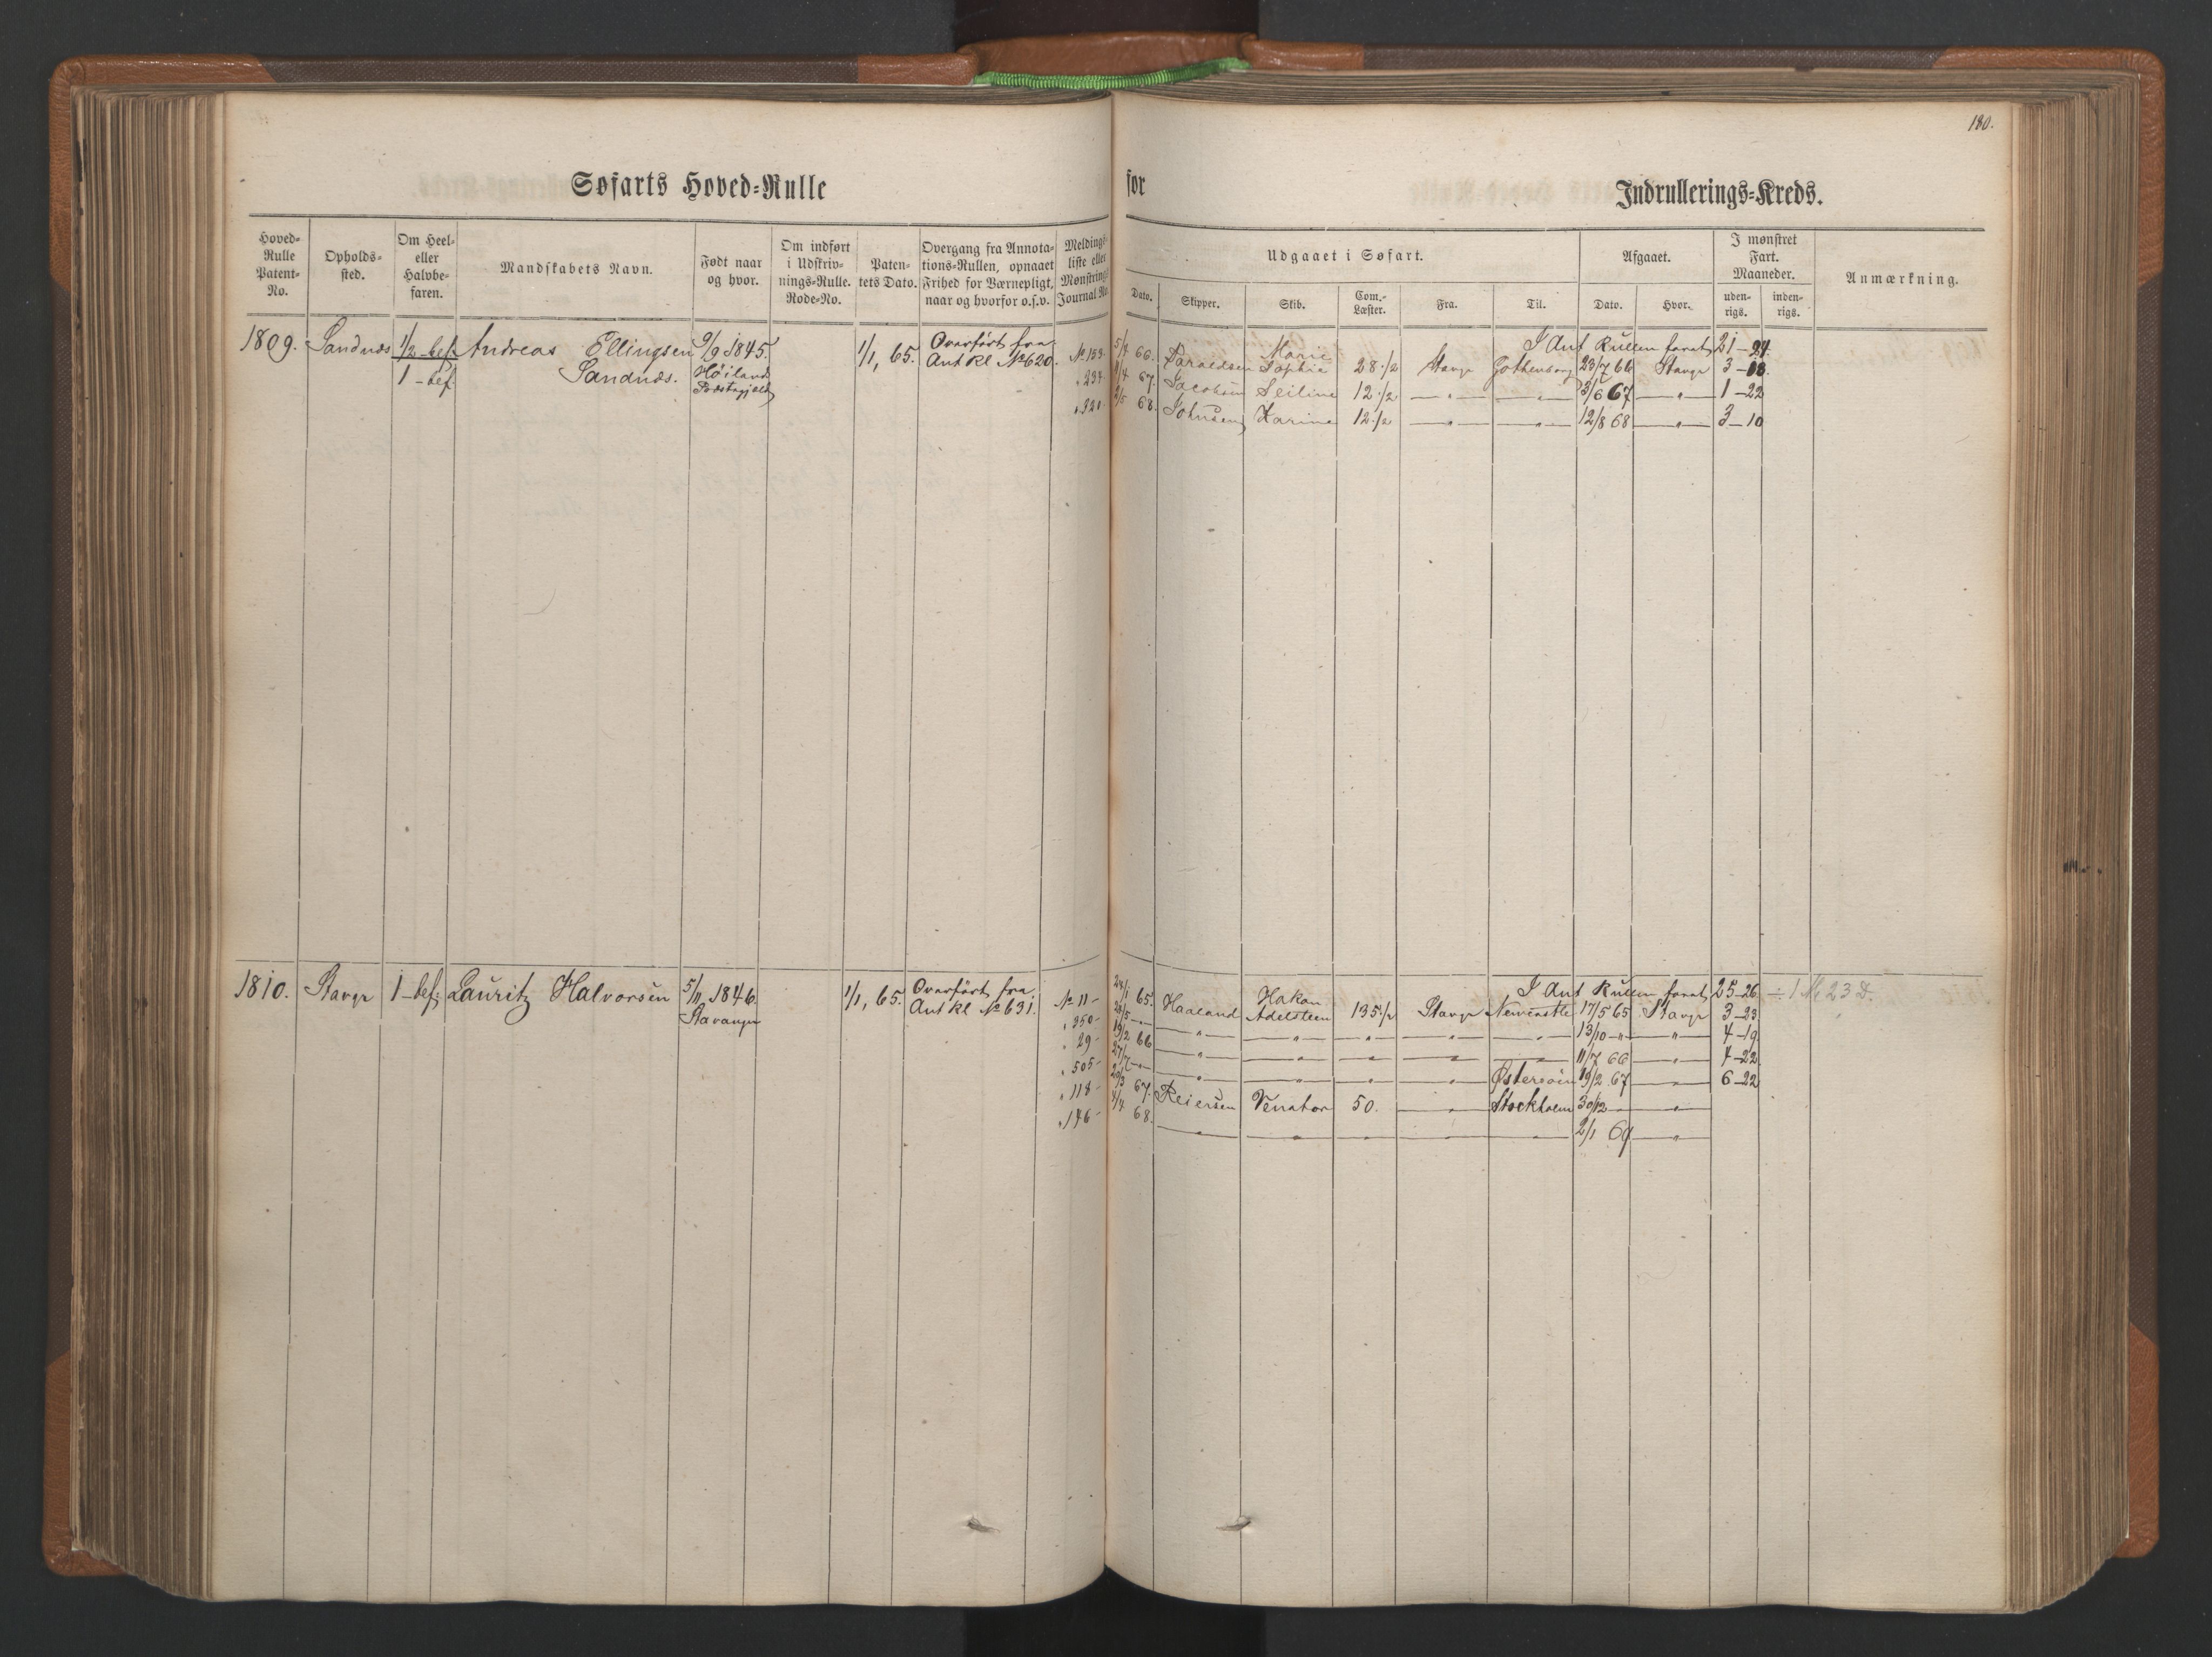 180.
Søfarts Hoved=Rulle for Indrullerings=Kreds.
Hoved=Rulle Patent=No.
Opholds=sted.
Om Heel= eller Halvbefaren.
Mandskabets Navn.
Født naar og hvor.
Om indført i Udskrivnings=Rulle. Rode=No.
Patentets Dato.
Overgang fra Annotations=Rullen, opnaaet Frihed for Værnepligt, naar og hvorfor o.s.v.
Meldings liste eller Mønstrings Journal No.
Udgaaet i Søfart.
Dato. Skipper. Skib. Com.=Læster. Fra. Til.
Afgaaet.
Dato. Hvor.
I mønstret Fart. Maaneder.
udenrigs. indenrigs.
Anmærkning.
1809. Sandnæs 1/2 - bef. Andreas Ellingsen 9/9 1845. 1/1, 65. Overført fra
1 - bef. Sandnæs. Høiland Præstegjeld Ant Rl No 620.
I Ant Rullen faret 21 - 24.
No 159. 5/4 66. Marie Sophie 28 1/2 Stavgr Gothenborg 23/7 66 Stavgr 3 - 18.
" 234- 67. Jacobsen Seiline 12 1/2 — " — — " — 3/6 67 — " — 1 - 22
" 320- 2/5 68. Johnsen Karine 12 1/2 — " — — " — 12/8 68 — " — 3 - 10
1810. Stavgr 1 - bef. Lauritz Halvorsen 5/11 1846. 1/1, 65. Overført fra
Stavanger Ant Rl No 631.
I Ant Rullen faret 25 - 26 ÷ 1 M 23 D.
No 11 - 24/1 65. Haaland Hakon Adelsteen 135 1/2 Stavgr Newcastle 17/5 65 Stavgr 3 - 23
" 350 - — " — — " — — " — — " — — " — 13/10 - " - — " — 4 - 19
" 29 - 19/2 66 — " — — " — — " — — " — — " — 11/7 66 — " — 4 - 22
" 505 - 27/7 - " - — " — — " — — " — — " — Østersøen 19/2 67 — " — 6 - 22
" 118 - 20/3 67. Reiersen Venator 50. — " — Stockholm 30/12 — — " —
" 146 - 4/4 68. — " — — " — — " — — " — — " — 2/1 69 — " —